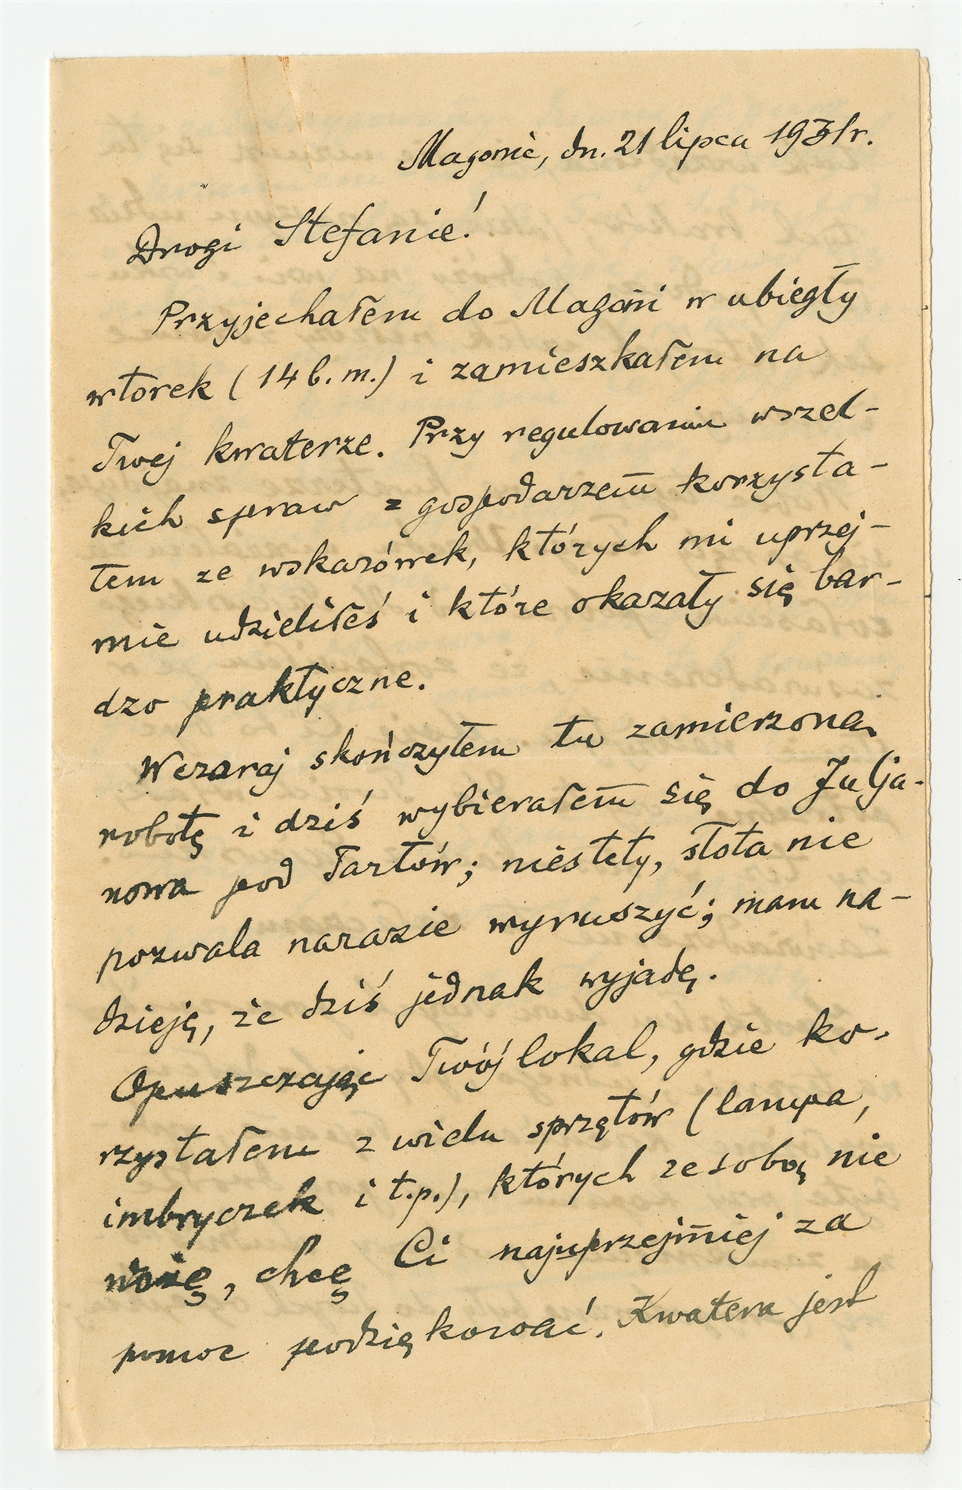 Magonie, dn. 21 lipca 1931r.
Drogi Stefanie!
Przyjechałem do Magoni w ubiegły
wtorek (14 b.m.) i zamieszkałem na
Twej kwaterze. Przy regulowaniu wszel-
kich spraw z gospodarzem korzysta-
łem ze wskazówek, których mi uprzej-
mie udzieliłeś i które okazały się bar-
dzo praktyczne.
Wczoraj skończyłem tu zamierzoną
robotę i dziś wybierałem się do Julja-
nowa pod Tarłów; niestety, słota nie
pozwala narazie wyruszyć; mam na-
dzieję, że dziś jednak wyjadę.
Opuszczając Twój lokal, gdzie ko-
rzystałem z wielu sprzętów (lampa,
imbryczek i t.p.), których ze sobą nie
wożę, chcę Ci najuprzejmiej za
pomoc podziękować. Kwatera jest